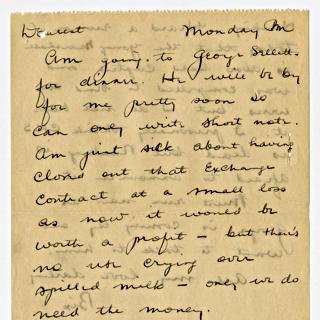 Dearest Monday PM
Am going to George
for dinner. He will be by
for me pretty soon so
can only write short note.
Am just sick about having
closed out that Exchange
Contract at a small loss
as now it would be
worth a profit – but there's
no use crying over
spilled milk – only we do
need the money.